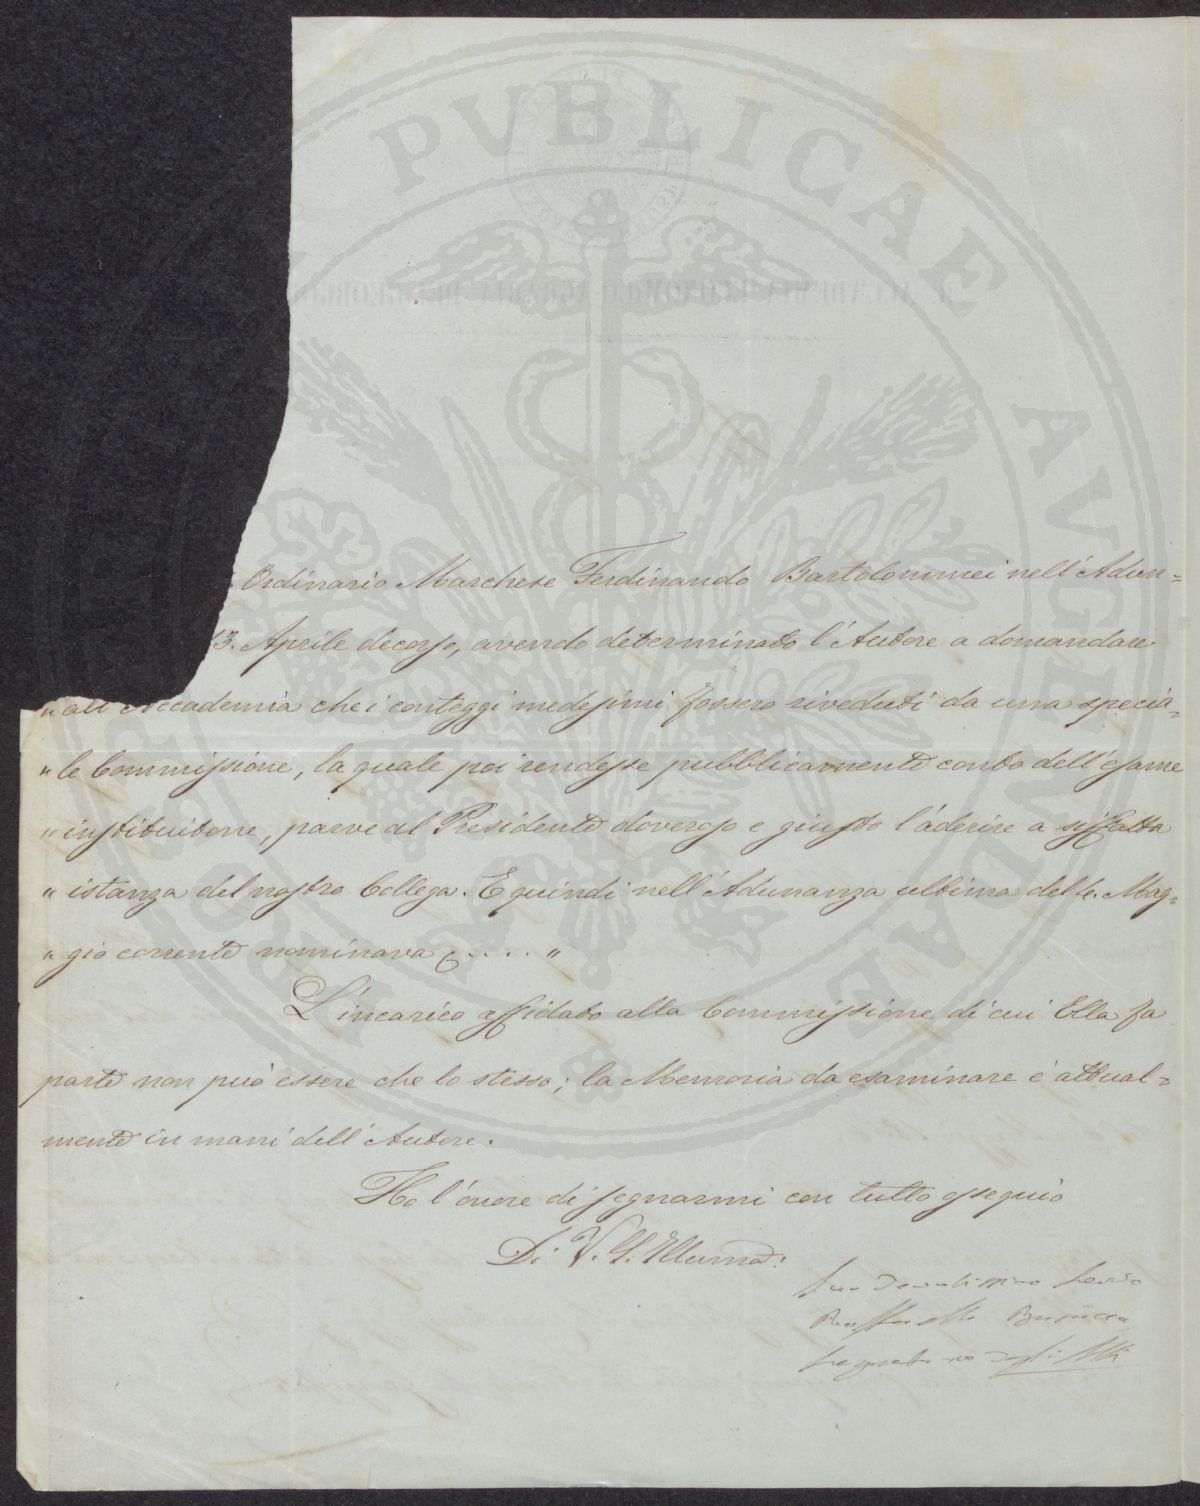 PVBLICAE AVGENDAE
Ordinario Marchese Ferdinando Bartolommei nell'Adun=
13. Aprile decorso, avendo determinato l'Autore a domandare
" all'Accademia che i conteggi medesimi fossero riveduti da una specia=
" le Commissione, la quale poi rendesse pubblicamente conto dell'esame
" instituitone, parve al Presidente doveroso e giusto l'aderire a siffatta
" istanza del nostro Collega. E quindi nell'Adunanza ultima del Mag=
" gio corrente nominava ec. . . . "
L'incarico affidato alla Commissione di cui Ella fa
parte non può essere che lo stesso; la Memoria da esaminare è attual=
mente in mani dell'Autore.
Ho l'onore di segnarmi con tutto ossequio
Di V. S. Illuma:
Suo Devotissimo Servo
Raffaello Busacca
Segretario degli Atti